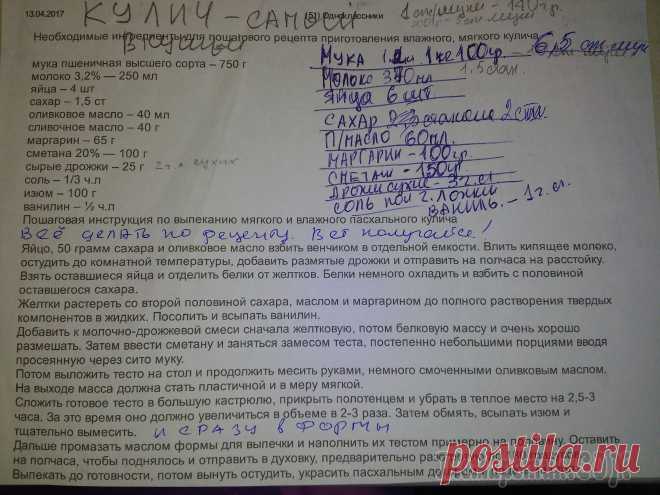 13.04.2017
(51) Одноклассники
КУЛИЧ – САМЫЙ
1 ст. муки – 140 гр.
Необходимые ингредиенты для пошагового рецепта приготовления влажного, мягкого кулича
МУКА 1 кг 100 гр. 6,5 ст.
мука пшеничная высшего сорта – 750 г
МОЛОКО 370 мл 1,5 стак.
молоко 3,2% — 250 мл
ЯЙЦА 6 шт
яйца – 4 шт
сахар – 1,5 ст
САХАР 2 стакана
оливковое масло – 40 мл
П/МАСЛО 60 мл.
сливочное масло – 40 г
МАРГАРИН – 100 гр.
маргарин – 65 г
СМЕТАНА – 150 гр
сметана 20% — 100 г
ДРОЖЖИ СУХИЕ – 3 ч. л.
сырые дрожжи – 25 г 2 ч. л. сухих
СОЛЬ ПОЛ Ч. ЛОЖКИ
соль – 1/3 ч.л
ВАНИЛЬ – 1 ч. л.
изюм – 100 г
ванилин – ½ ч.л
Пошаговая инструкция по выпеканию мягкого и влажного пасхального кулича
Всё делать по рецепту. Всё получается!
Яйцо, 50 грамм сахара и оливковое масло взбить венчиком в отдельной емкости. Влить кипящее молоко,
остудить до комнатной температуры, добавить размятые дрожжи и отправить на полчаса на расстойку.
Взять оставшиеся яйца и отделить белки от желтков. Белки немного охладить и взбить с половиной
оставшегося сахара.
Желтки растереть со второй половиной сахара, маслом и маргарином до полного растворения твердых
компонентов в жидких. Посолить и всыпать ванилин.
Добавить к молочно-дрожжевой смеси сначала желтковую, потом белковую массу и очень хорошо
размешать. Затем ввести сметану и заняться замесом теста, постепенно небольшими порциями вводя
просеянную через сито муку.
Потом выложить тесто на стол и продолжить месить руками, немного смоченными оливковым маслом.
На выходе масса должна стать пластичной и в меру мягкой.
Сложить готовое тесто в большую кастрюлю, прикрыть полотенцем и убрать в теплое место на 2,5-3
часа. За это время оно должно увеличиться в объеме в 2-3 раза. Затем обмять, всыпать изюм и
тщательно вымесить. и сразу в формы
Дальше промазать маслом формы для выпечки и наполнить их тестом примерно на половину. Оставить
на полчаса, чтобы поднялось и отправить в духовку, предварительно
Выпекать до готовности, потом вынуть остудить, украсить пасхальным
postila.ru